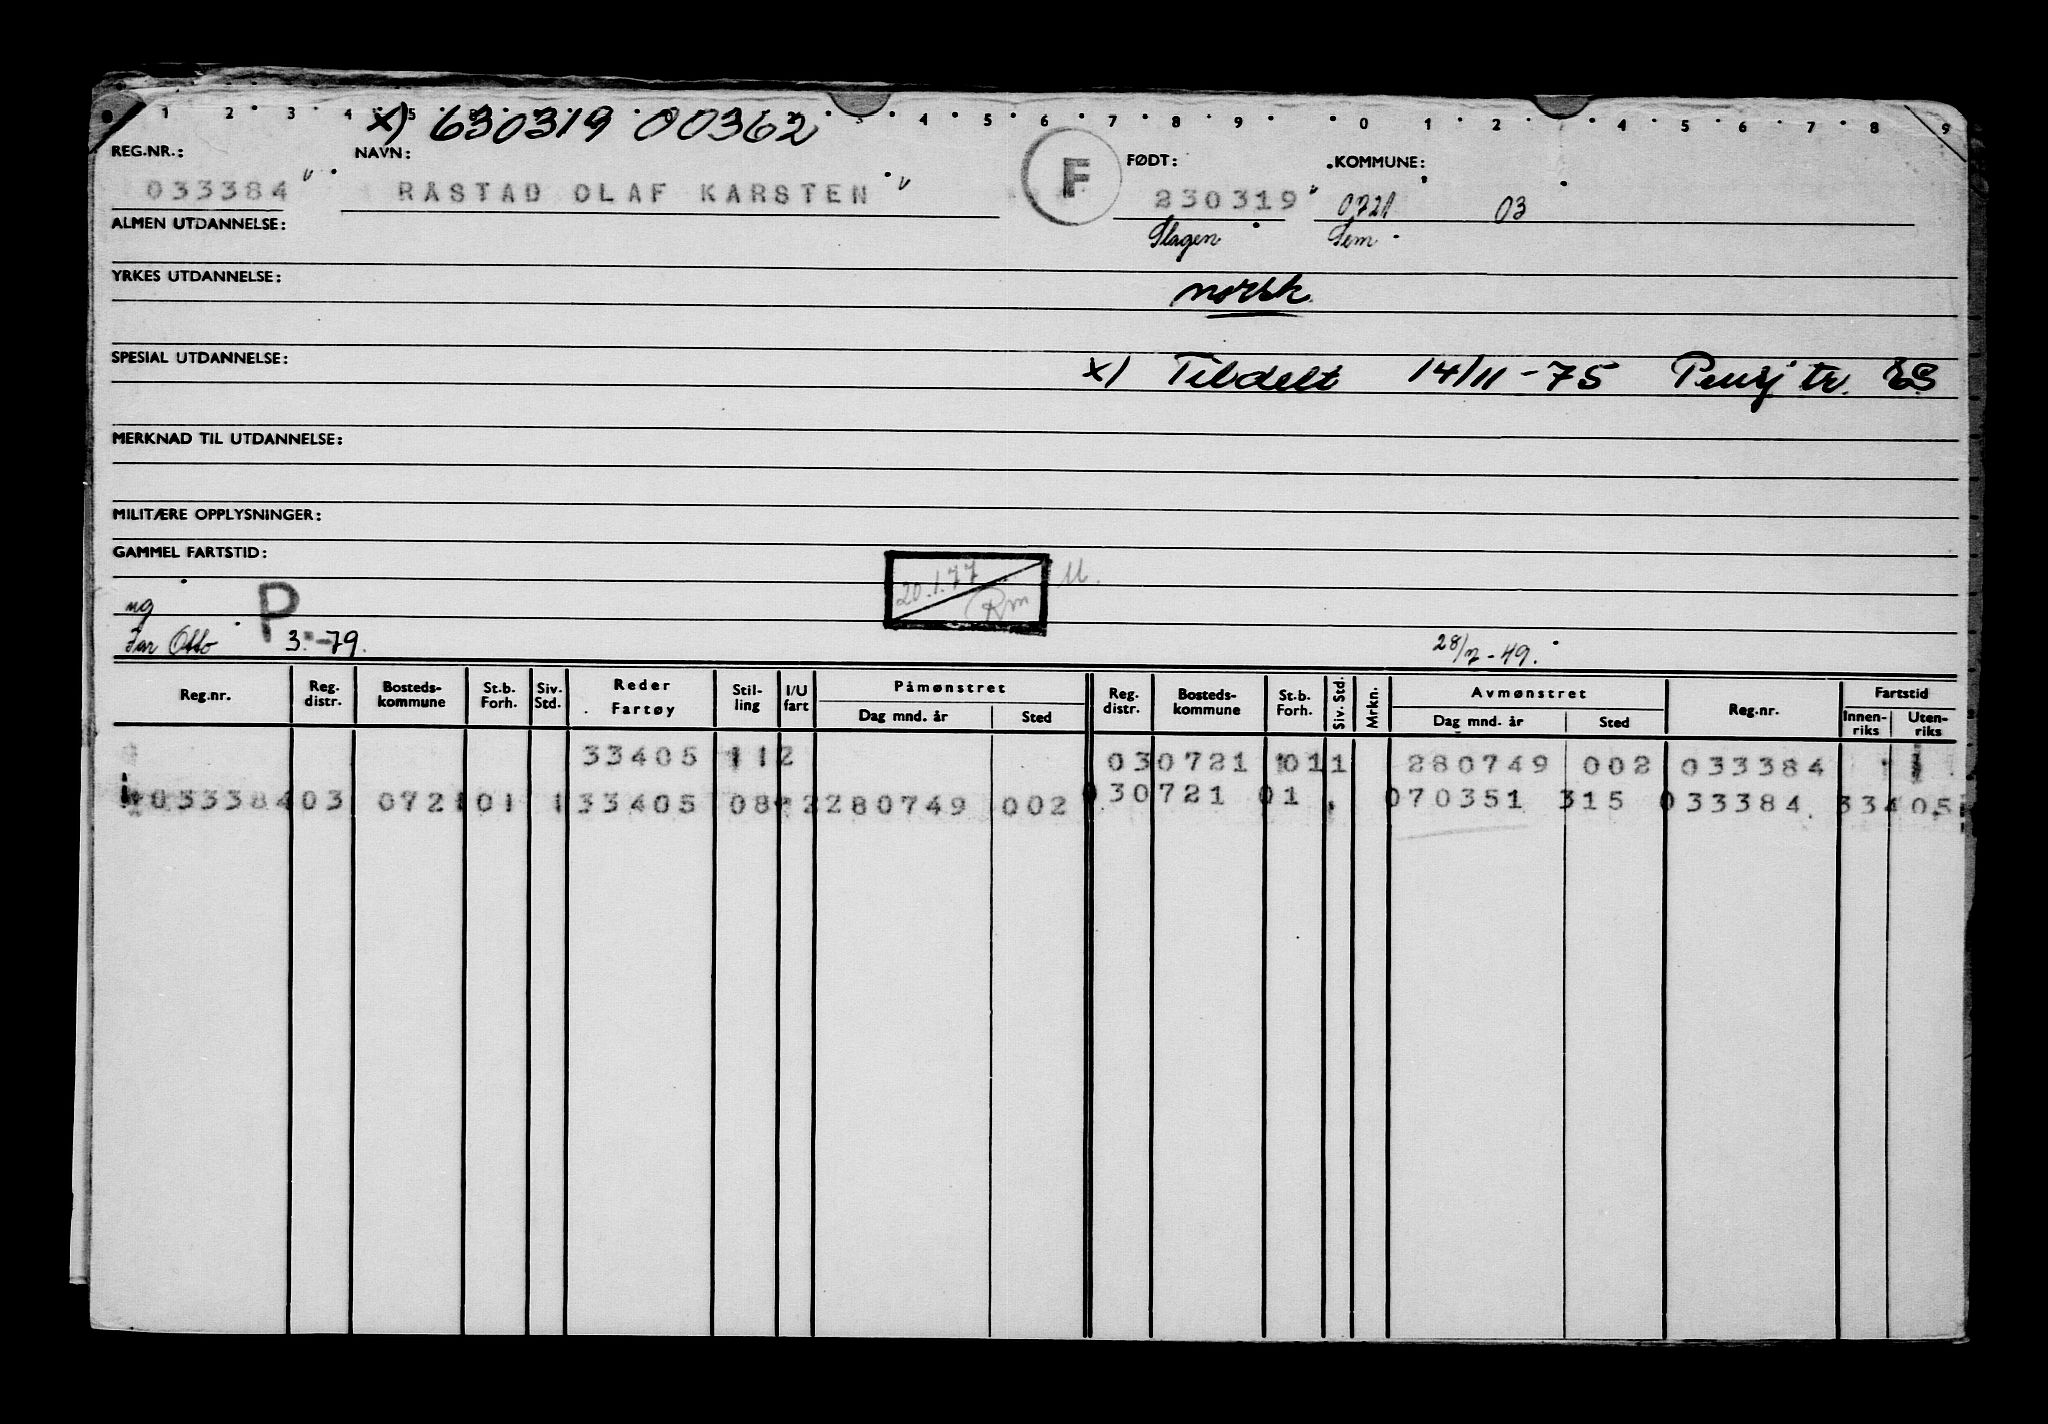 1 2 3 4 5 3 4 5 6 7 8 9 0 1 2 4 5 6 7 8 9
x) 630319 00362
REG.NR.: NAVN: F FØDT: KOMMUNE:
033384 " RÅSTAD OLAF KARSTEN " 230319 " 0721 03
ALMEN UTDANNELSE: Slagen Sem
YRKES UTDANNELSE: norsk
SPESIAL UTDANNELSE: x) Tildelt 14/11-75 Pensj tr. ES
MERKNAD TIL UTDANNELSE:
MILITÆRE OPPLYSNINGER:
GAMMEL FARTSTID:
20.1.77 Rm M.
ug P
Far Otto 3.-79. 28/7-49.
Reg.nr. Reg. distr. Bosteds-kommune St.b. Forh. Siv. Std. Reder Fartøy Stil-ling I/U fart Påmønstret Dag mnd. år Sted Reg. distr. Bosteds-kommune St.b. Forh. Siv. Std. Mrkn. Avmønstret Dag mnd. år Sted Reg.nr. Fartstid Innen-riks Uten-riks
33405 112 030721 011 280749 002 033384
033384 03 0721 01 1 33405 08 2 280749 002 030721 01 070351 315 033384 33405